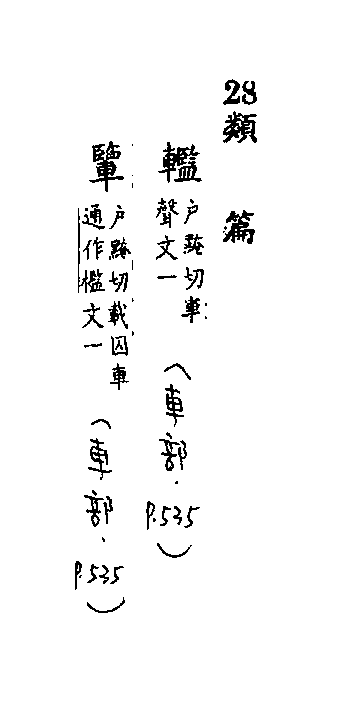 28
類篇
轞
戶黤切車
聲文一
(車部.P.535)
戶黤切載囚車
通作檻文一
(車部.P.535)